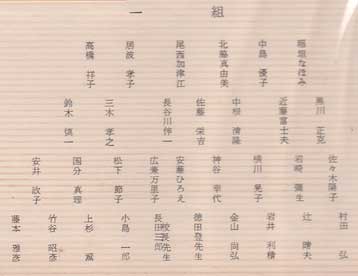 一組
稲垣なほみ
中島 優子
北脇真由美
尾西加津江
居波 孝子
高橋 祥子
黒川 正克
近藤富士夫
中根 清隆
佐藤 栄吉
長谷川伸一
三木 孝之
鈴木 慎一
佐々木陽子
岩崎 彌生
横川 晃子
神谷 幸代
安藤ひろえ
広兼万里子
松下 節子
国分 真理
安井 政子
村田 弘
辻 晴夫
岩井 利積
金山 尚弘
徳田登先生
校長先生
長田三郎
小島 一郎
上杉
竹谷 昭彦
藤本 雅彦